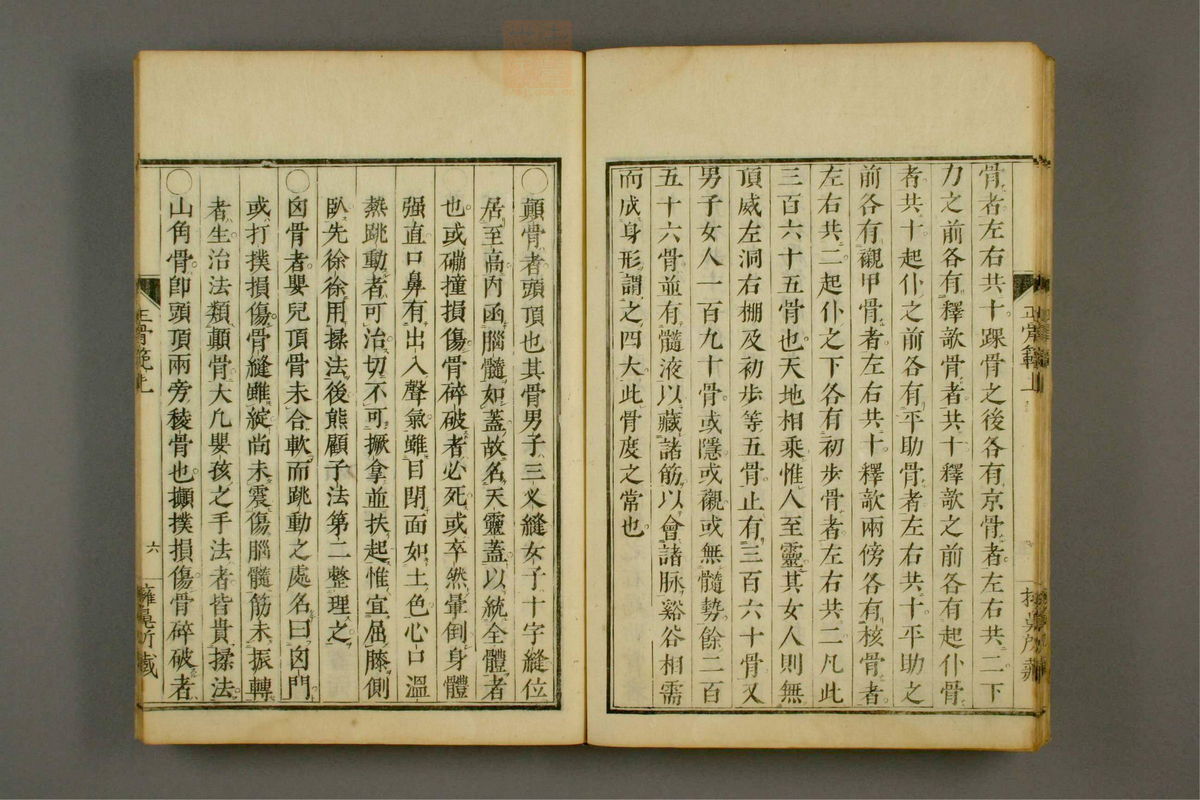 骨者左右共十踝骨之後各有京骨者左右共二下
力之前各有釋欹骨者共十釋欹之前各有起仆骨
者共十起仆之前各有平助骨者左右共十平助之
前各有襯甲骨者左右共十釋欹兩傍各有核骨者
左右共二起仆之下各有初步骨者左右共二凡此
三百六十五骨也天地相乘惟人至靈其女人則無
頂威左洞右棚及初步等五骨止有三百六十骨又
男子女人一百九十骨或隱或襯或無髓勢餘二百
五十六骨並有髓液以藏諸筋以會諸脉谿谷相需
而成身形謂之四大此骨度之常也
◯顛骨者頭頂也其骨男子三叉縫女子十字縫位
居至高內函腦髓如蓋故名天靈蓋以統全體者
也或磞撞損傷骨碎破者必死或卒然暈倒身體
强直口鼻有出入聲氣雖目閉面如土色心口溫
熱跳動者可治切不可撅拿並扶起惟宜屈膝側
臥先徐徐用揉法後熊顧子法第二整理之
◯囟骨者嬰兒頂骨未合軟而跳動之處名曰囟門
或打撲損傷骨縫雖綻尚未震傷腦髓筋未振轉
者生治法類顛骨大凡嬰孩之手法者皆貴揉法
◯山角骨卽頭頂兩旁稜骨也攧撲損傷骨碎破者
六